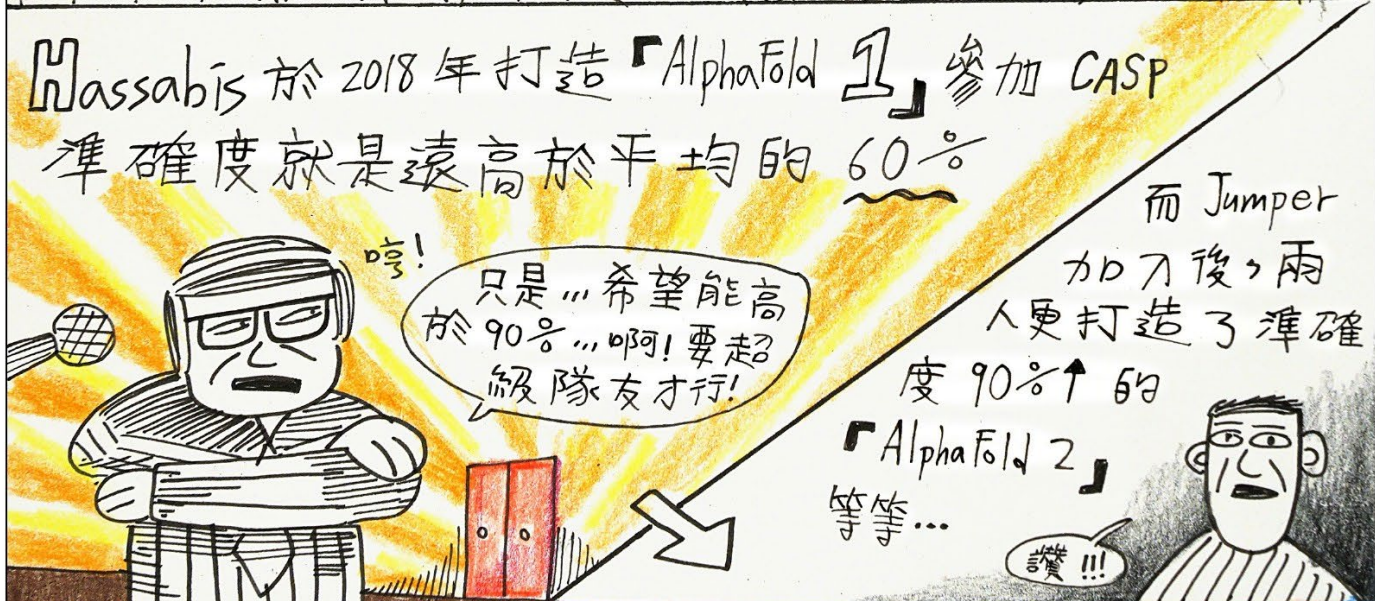 Hassabis 於 2018 年打造『AlphaFold 1』參加 CASP
準確度就是遠高於平均的 60%
哼!
只是...希望能高
於 90%...啊!要超
級隊友才行!
而 Jumper
加入後,兩
人更打造了準確
度 90%↑ 的
『AlphaFold 2』
等等...
讚!!!